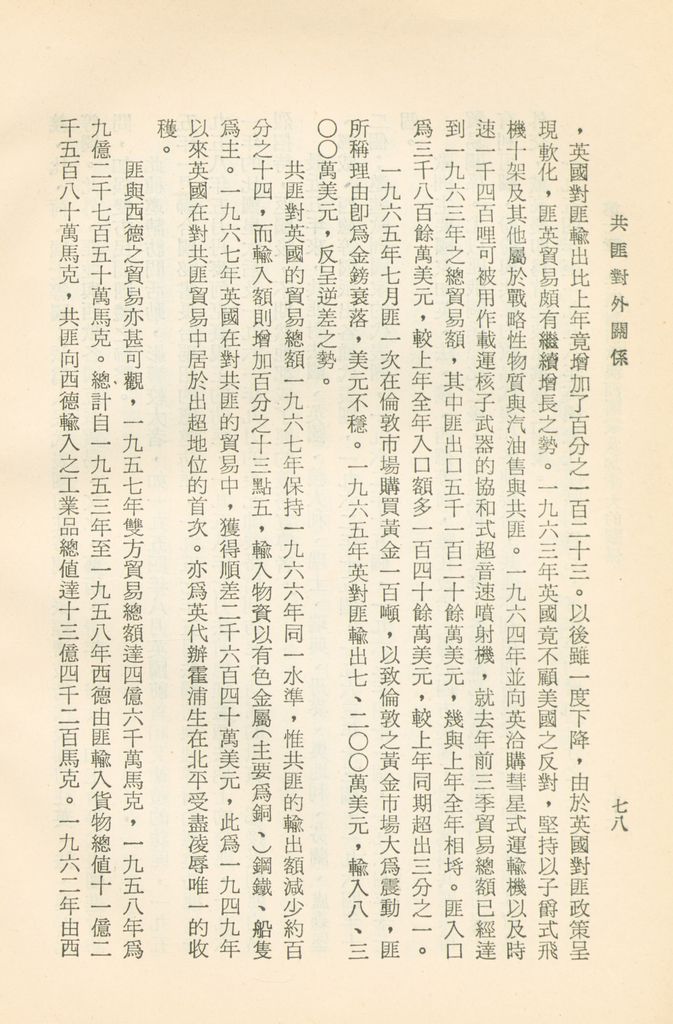 共匪對外關係
七八
，英國對匪輸出比上年竟增加了百分之一百二十三。以後雖一度下降，由於英國對匪政策呈
現軟化，匪英貿易頗有繼續增長之勢。一九六三年英國竟不顧美國之反對，堅持以子爵式飛
機十架及其他屬於戰略性物質與汽油售與共匪。一九六四年並向英洽購彗星式運輸機以及時
速一千四百哩可被用作載運核子武器的協和式超音速噴射機，就去年前三季貿易總額已經達
到一九六三年之總貿易額，其中匪出口五千一百二十餘萬美元，幾與上年全年相埒。匪入口
爲三千八百餘萬美元，較上年全年入口額多一百四十餘萬美元，較上年同期超出三分之一。
一九六五年七月匪一次在倫敦市場購買黃金一百噸，以致倫敦之黃金市場大爲震動，匪
所稱理由卽爲金鎊衰落，美元不穩。一九六五年英對匪輸出七、二〇〇萬美元，輸入八、三
〇〇萬美元，反呈逆差之勢。
共匪對英國的貿易總額一九六七年保持一九六六年同一水準，惟共匪的輸出額減少約百
分之十四，而輸入額則增加百分之十三點五，輸入物資以有色金屬（主要爲銅、）鋼鐵、船隻
爲主。一九六七年英國在對共匪的貿易中，獲得順差二千六百四十萬美元，此爲一九四九年
以來英國在對共匪貿易中居於出超地位的首次。亦爲英代辦霍浦生在北平受盡凌辱唯一的收
穫。
匪與西德之貿易亦甚可觀，一九五七年雙方貿易總額達四億六千萬馬克，一九五八年爲
九億二千七百五十萬馬克。總計自一九五三年至一九五八年西德由匪輸入貨物總值十一億二
千五百八十萬馬克，共匪向西德輸入之工業品總値達十三億四千二百馬克。一九六二年由西